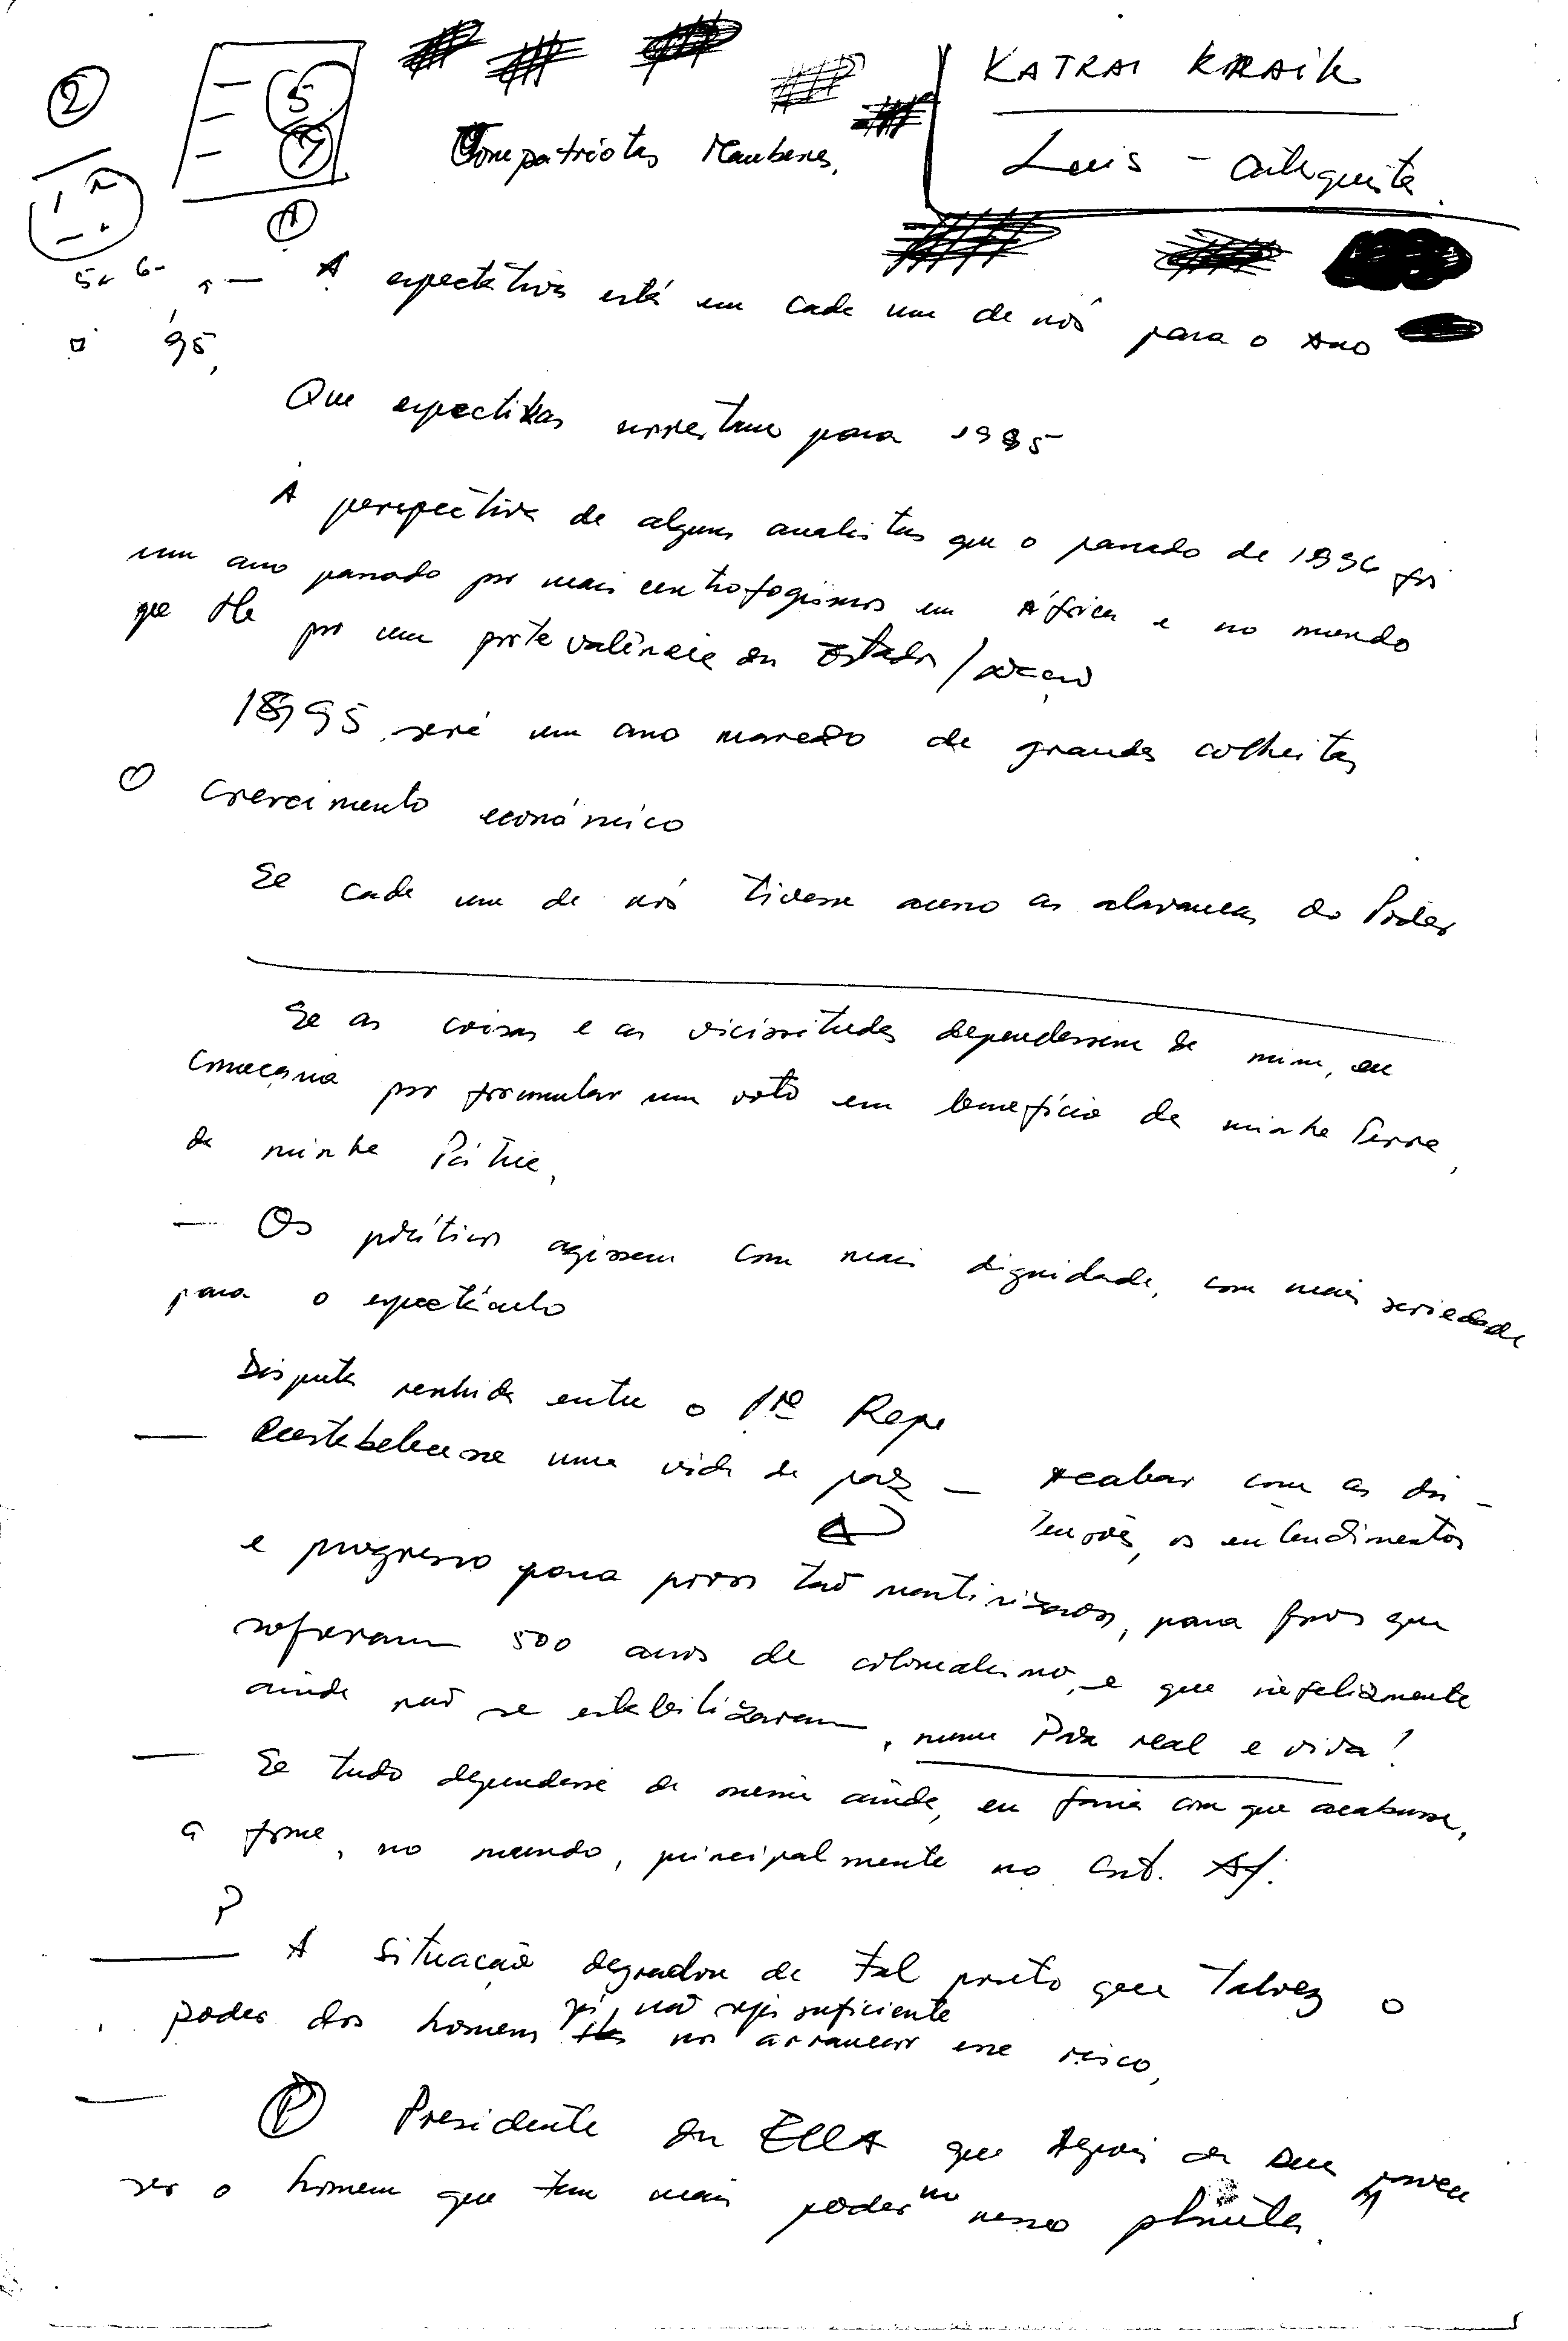 2
5
7
KATRAI KRAIK
Compatriotas Mauberes,
Luis - Catequista.
A expectativa está em cada um de nós para o Ano
95,
Que expectivas para 1995
A perspectiva de alguns analistas que o passado de 1994 foi
um ano passado por mais em África e no mundo
que por um Estado /
1995 será um ano de grandes colheitas
Crescimento económico
Se cada um de nós tivesse acesso as alavancas do Poder
Se as coisas e as vicissitudes dependessem de mim, eu
começaria por formular um voto em benefício da minha Terra,
da minha Pátria,
— Os políticos agissem com mais dignidade, com mais seriedade
para o espectáculo
Disputa renhida entre o
— uma vida de paz — Acabar com as dis-
tensões, os entendimentos
e progresso para povos tão martirizados, para povos que
sofreram 500 anos de colonialismo, e que infelizmente
ainda não se estabilizaram, numa Paz real e viva!
— Se tudo dependesse de mim ainda, eu faria com que acabasse,
a fome, no mundo, principalmente no Cont. Af.
?
— A situação degradou de tal ponto que talvez o
já, não seja suficiente
poder dos homens nos arrancar esse risco,
— P Presidente dos EUA que depois de Deus
ser o homem que tem mais poder no nosso planeta.